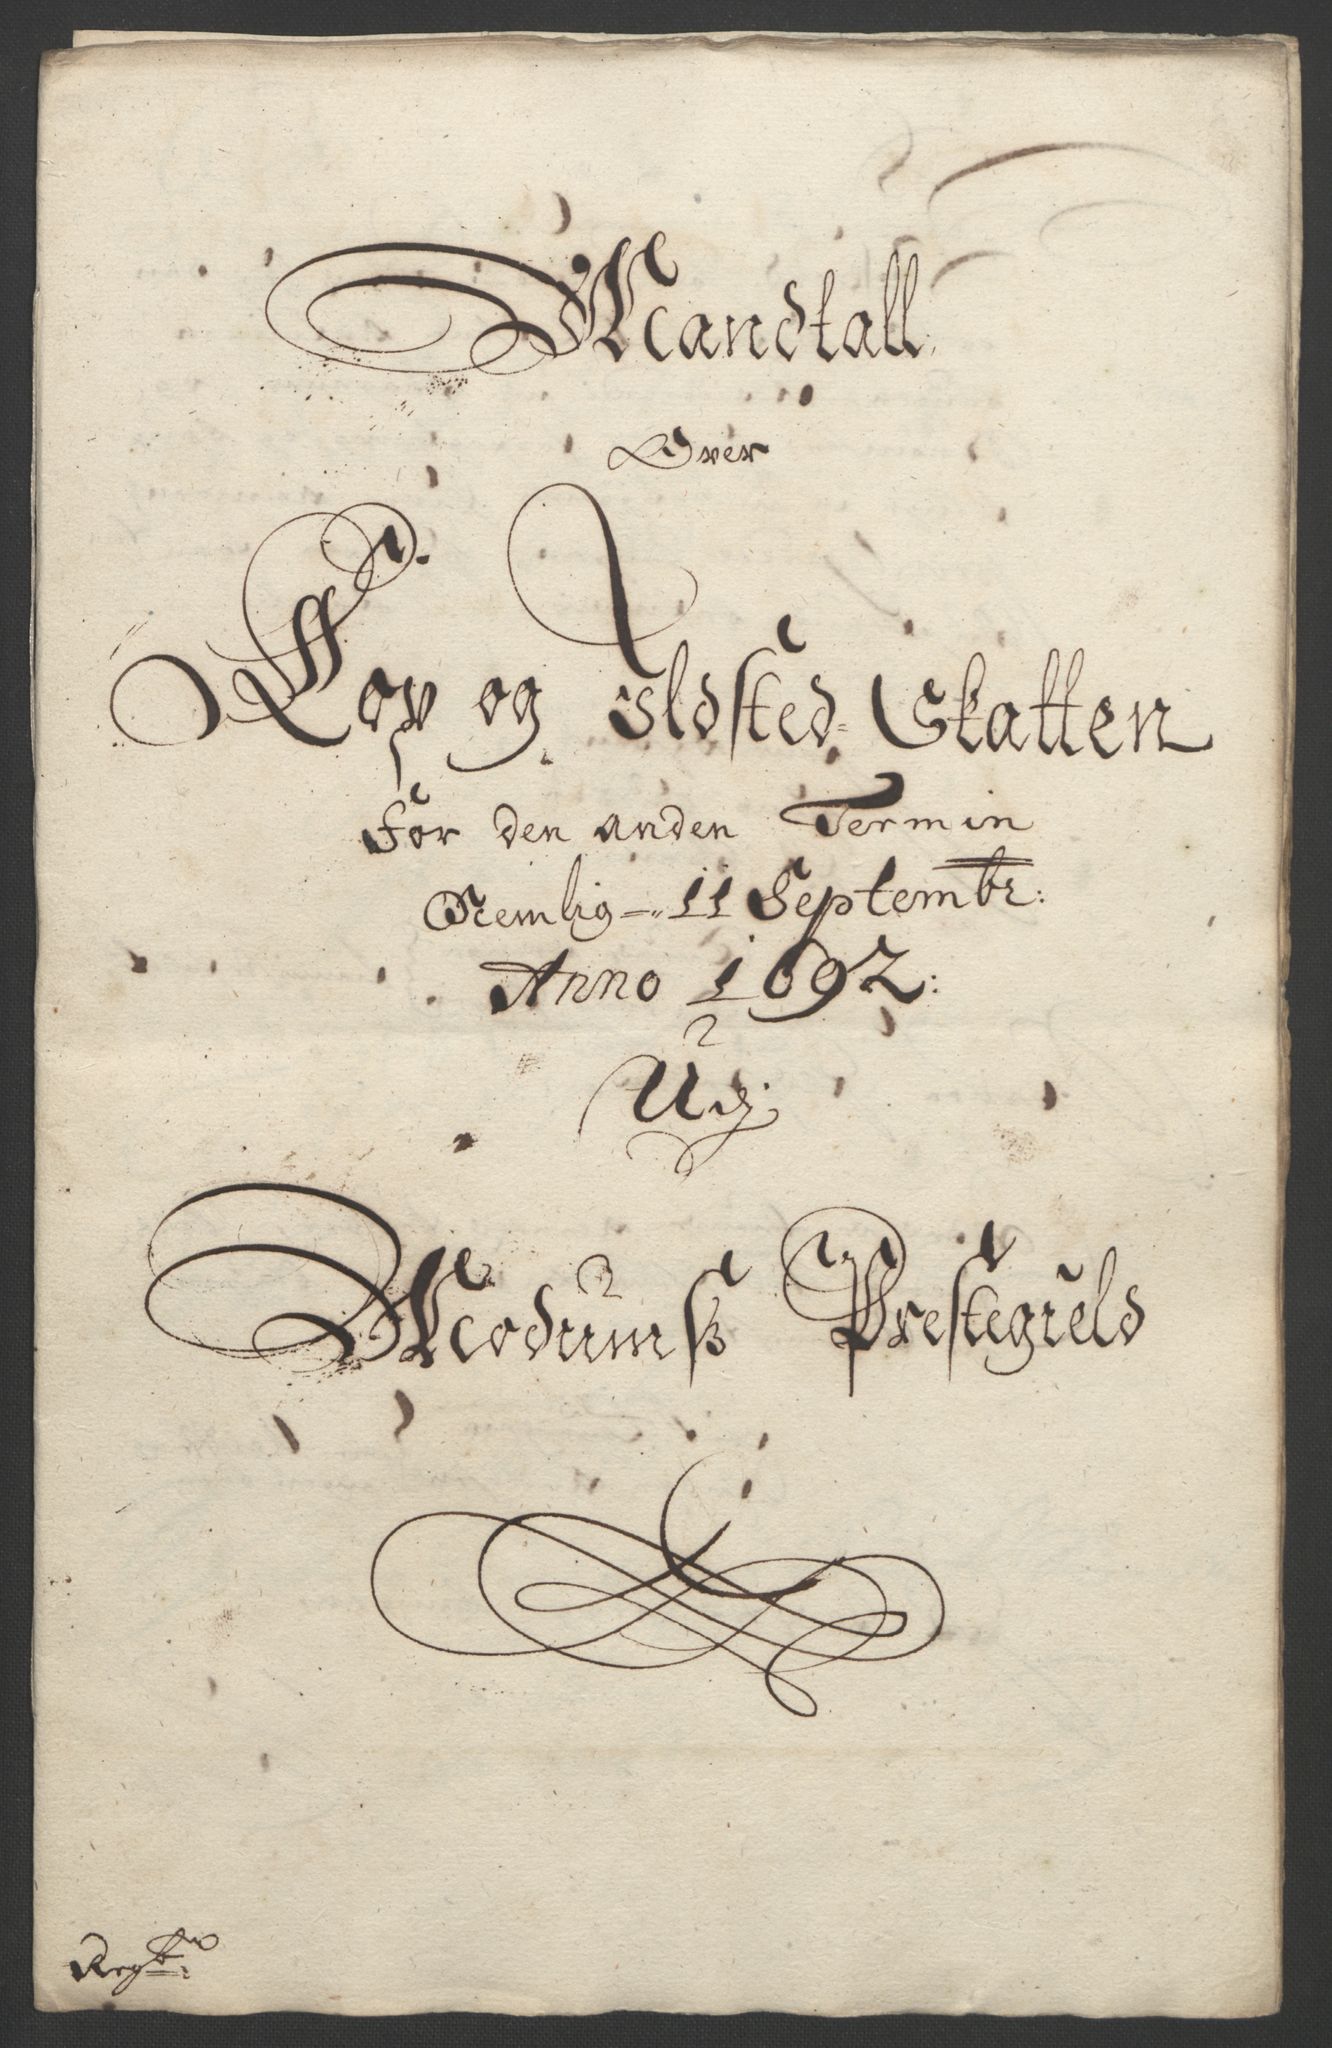 Mandtall
Over
Kop og Ildsted Skatten
For den anden Termin
Nemlig 11 Septembr:
Anno 1692:
Udj
Modumß Prestegield